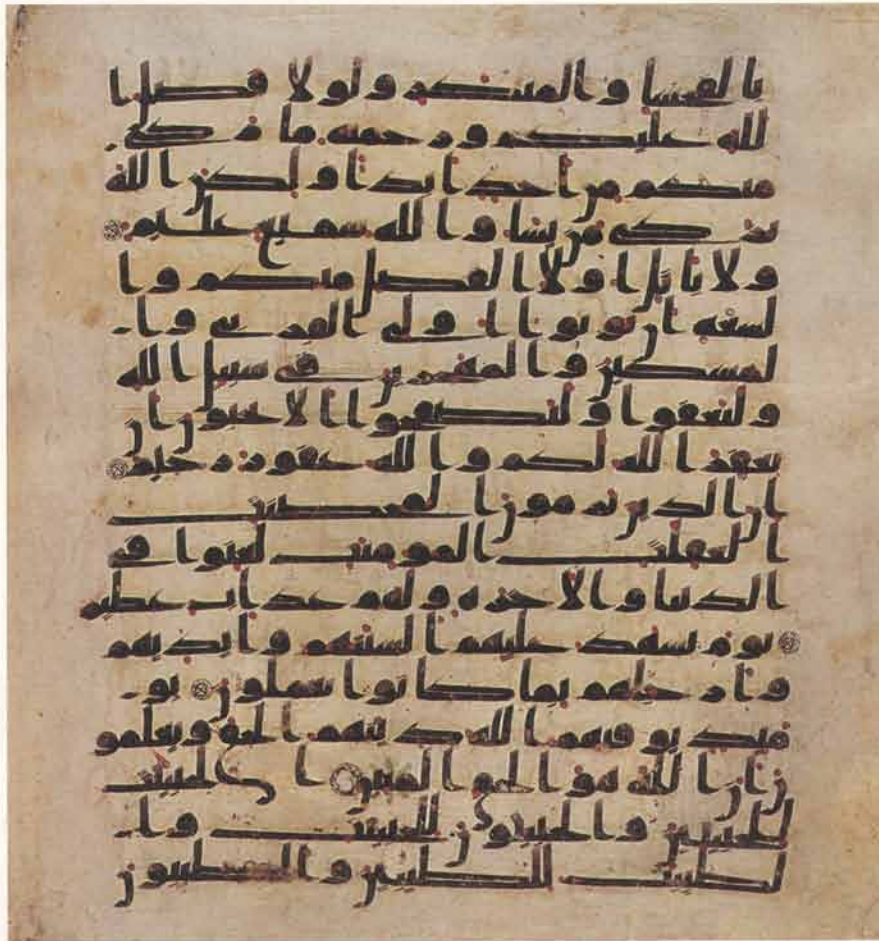 بالفحشا والمنكر ولولا فضل ا
لله عليكم ورحمته ما زكى
منكم من احد ابدا ولكن الله
يزكى من يشا والله سميع عليم
ولا ياتل اولوا الفضل منكم وا
لسعة ان يوتوا اولى القربى وا
لمسكين والمهجرين فى سبيل الله
وليعفوا وليصفحوا الا تحبون ان
يغفر الله لكم والله غفور رحيم
ان الذين يرمون المحصنت
الغفلت المومنت لعنوا فى
الدنيا والاخرة ولهم عذاب عظيم
يوم تشهد عليهم السنتهم وايديهم
وارجلهم بما كانوا يعملون يو
ميذ يوفيهم الله دينهم الحق ويعلمو
ن ان الله هو الحق المبين الخبيثت
للخبيثين والخبيثون للخبيثت وا
لطيبت للطيبين والطيبون